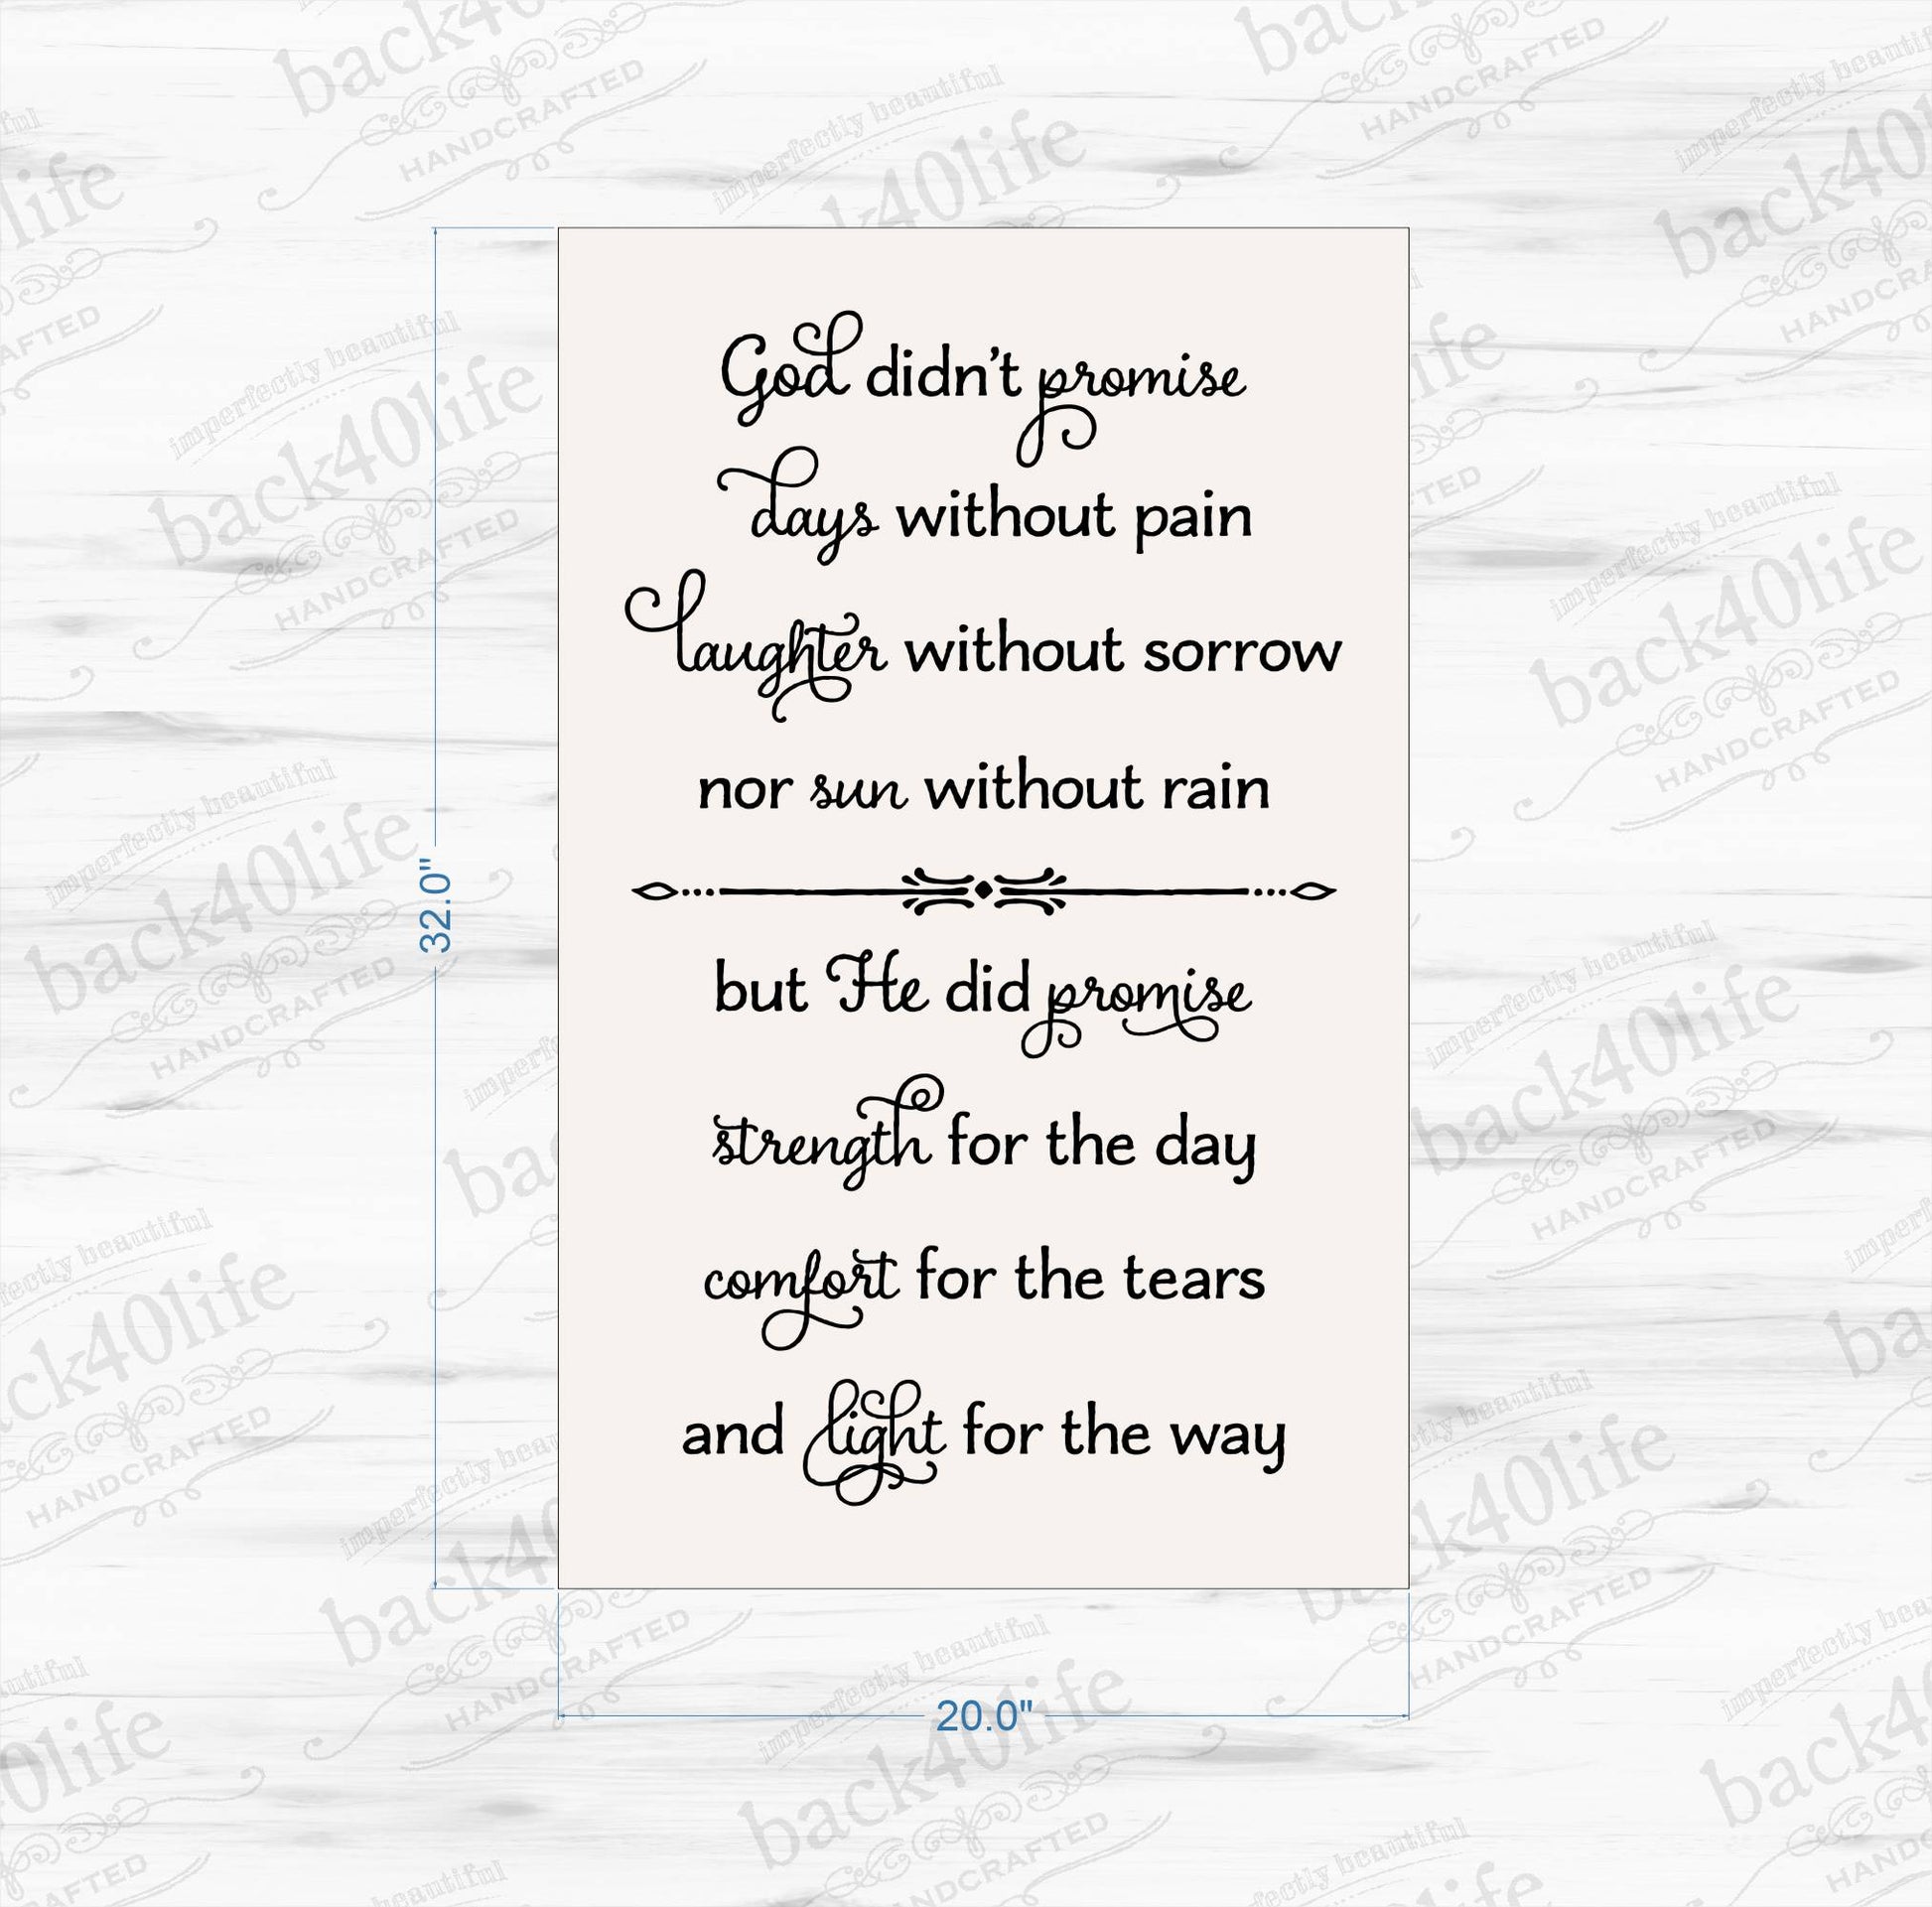 God didn't promise
days without pain
laughter without sorrow
nor sun without rain
but He did promise
strength for the day
comfort for the tears
and light for the way
32.0"
20.0"
imperfectly beautiful
back40life
HANDCRAFTED